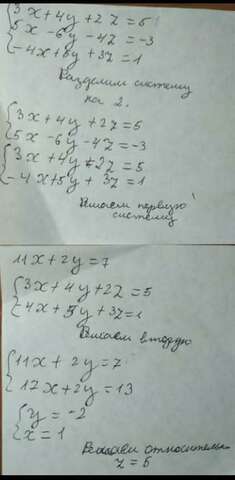 3x+4y+2z=5
5x-6y-4z=-3
-4x+5y+3z=1
Разделим систему
на 2.
3x+4y+2z=5
5x-6y-4z=-3
3x+4y+2z=5
-4x+5y+3z=1
Решаем первую
систему
11x+2y=7
3x+4y+2z=5
4x+5y+3z=1
Решаем вторую
11x+2y=7
17x+2y=13
y=-2
x=1
Решаем относительн
z=5